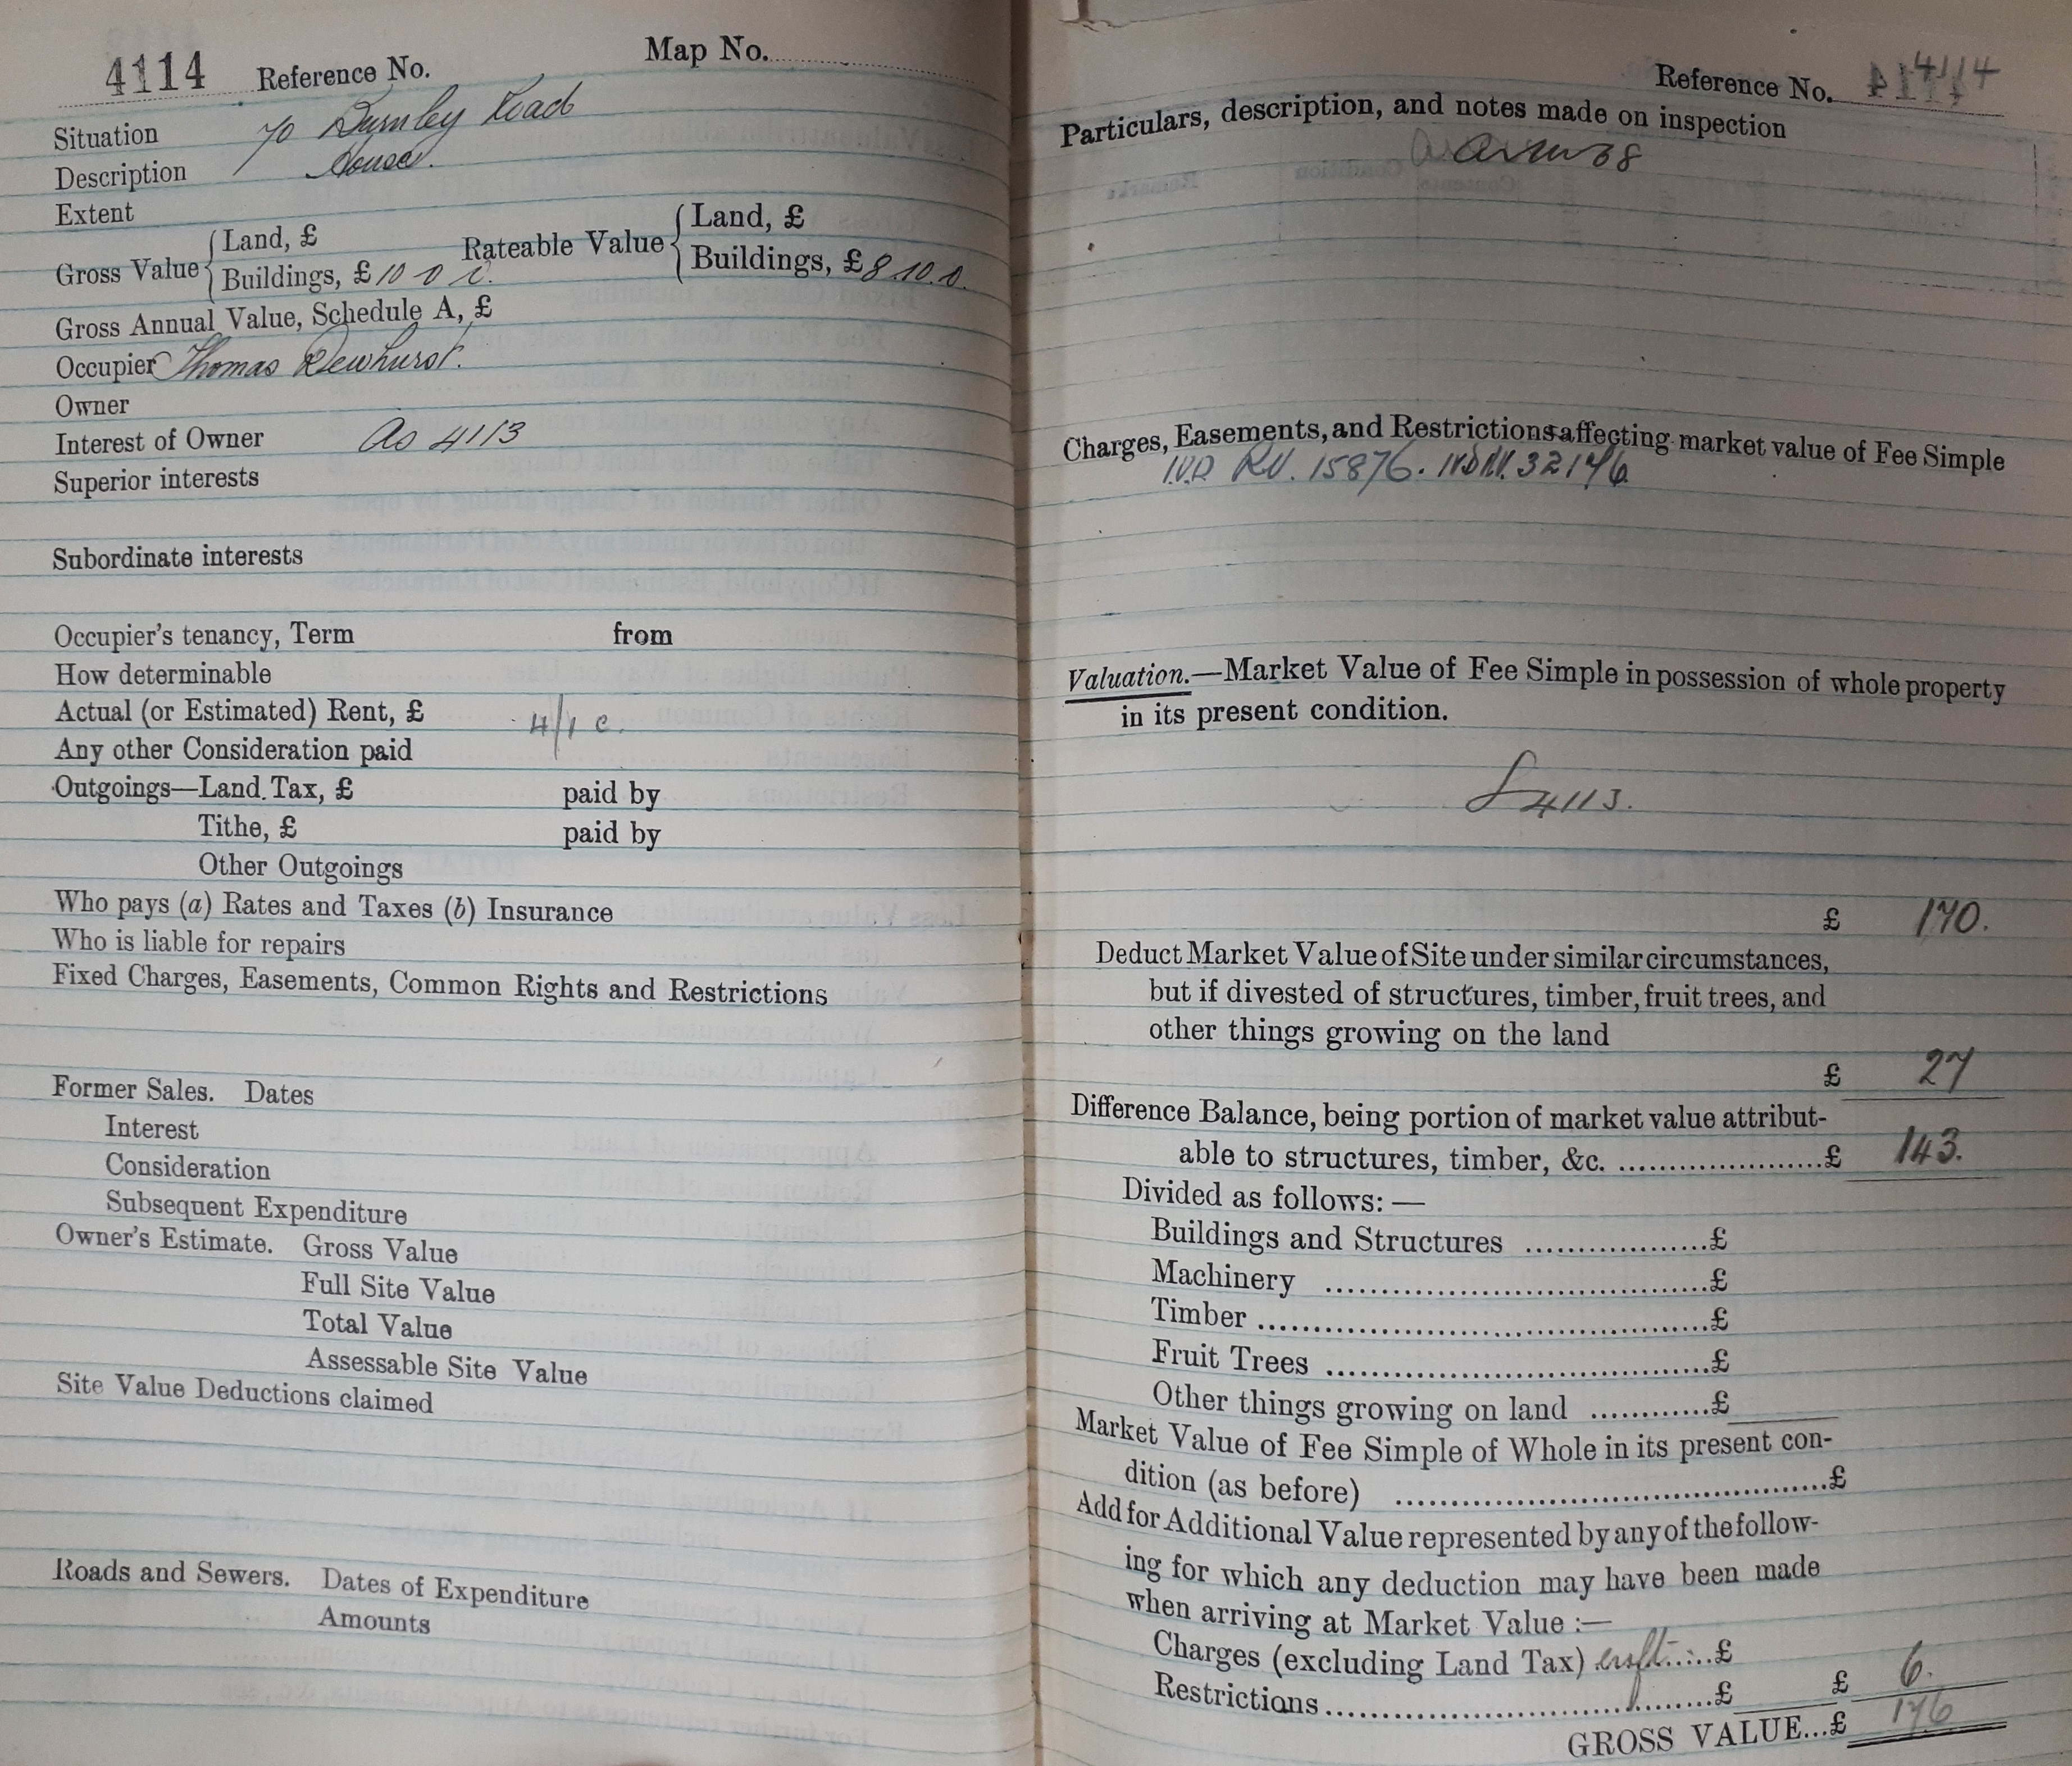 4114 Reference No. Map No.
Situation 70 Burnley Road
Description House.
Extent
Gross Value { Land, £
Buildings, £ 10 0 0. Rateable Value { Land, £
Buildings, £ 8.10.0.
Gross Annual Value, Schedule A, £
Occupier Thomas Dewhurst.
Owner
Interest of Owner As 4113
Superior interests
Subordinate interests
Occupier's tenancy, Term from
How determinable
Actual (or Estimated) Rent, £ 4/1 c.
Any other Consideration paid
Outgoings—Land Tax, £ paid by
Tithe, £ paid by
Other Outgoings
Who pays (a) Rates and Taxes (b) Insurance
Who is liable for repairs
Fixed Charges, Easements, Common Rights and Restrictions
Former Sales. Dates
Interest
Consideration
Subsequent Expenditure
Owner's Estimate. Gross Value
Full Site Value
Total Value
Assessable Site Value
Site Value Deductions claimed
Roads and Sewers. Dates of Expenditure
Amounts
Reference No. 4114
Particulars, description, and notes made on inspection
Charges, Easements, and Restrictions affecting market value of Fee Simple
15876. 32176
Valuation.—Market Value of Fee Simple in possession of whole property
in its present condition.
4113.
£ 170.
Deduct Market Value of Site under similar circumstances,
but if divested of structures, timber, fruit trees, and
other things growing on the land
£ 27
Difference Balance, being portion of market value attribut-
able to structures, timber, &c. ......................£ 143.
Divided as follows:—
Buildings and Structures ...................£
Machinery ........................................£
Timber ...............................................£
Fruit Trees ........................................£
Other things growing on land ............£
Market Value of Fee Simple of Whole in its present con-
dition (as before) ............................................£
Add for Additional Value represented by any of the follow-
ing for which any deduction may have been made
when arriving at Market Value :—
Charges (excluding Land Tax) ......£
Restrictions ........................................£ £ 6.
GROSS VALUE...£ 176